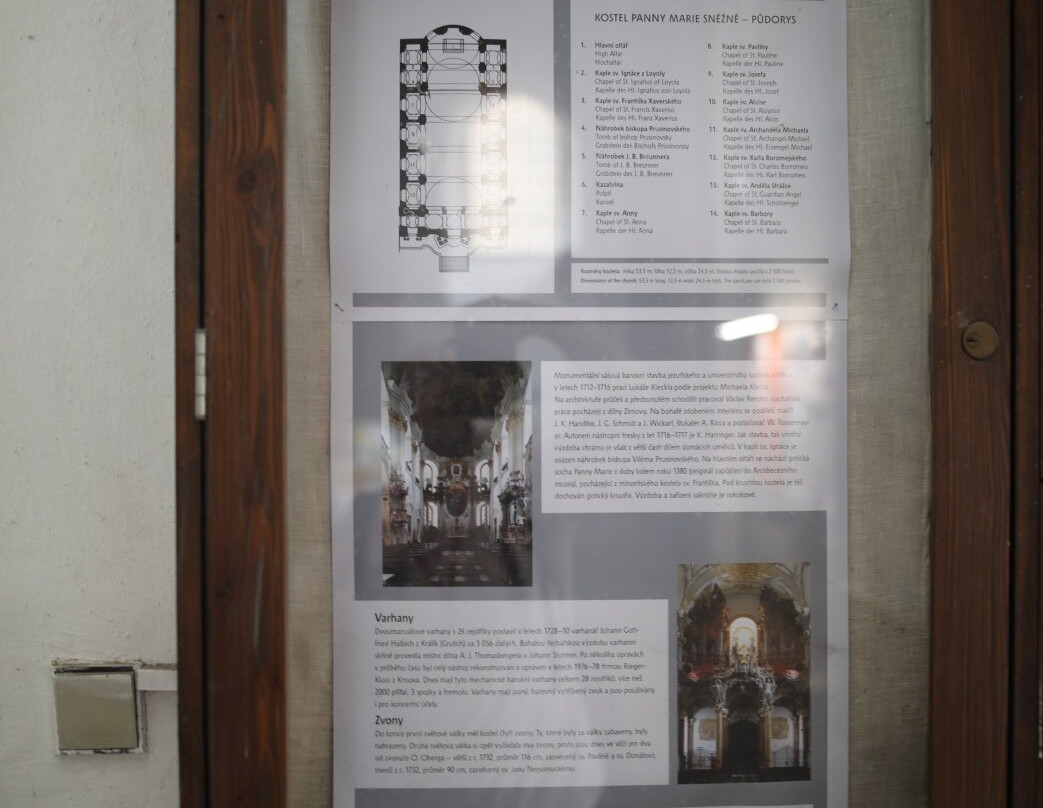 KOSTEL PANNY MARIE SNĚŽNÉ – PŮDORYS
1. Hlavní oltář
High Altar
Hochaltar
2. Kaple sv. Ignáce z Loyoly
Chapel of St. Ignatius of Loyola
Kapelle des Hl. Ignatius von Loyola
3. Kaple sv. Františka Xaverského
Chapel of St. Francis Xaverius
Kapelle des Hl. Franz Xaverius
4. Náhrobek biskupa Prusinovského
Tomb of bishop Prusinovsky
Grabstein des Bischofs Prusinovsky
5. Náhrobek J. B. Breunnera
Tomb of J. B. Breunner
Grabstein des J. B. Breunner
6. Kazatelna
Pulpit
Kanzel
7. Kaple sv. Anny
Chapel of St. Anna
Kapelle der Hl. Anna
8. Kaple sv. Pavlíny
Chapel of St. Pauline
Kapelle der Hl. Pauline
9. Kaple sv. Josefa
Chapel of St. Joseph
Kapelle des Hl. Josef
10. Kaple sv. Aloise
Chapel of St. Aloysius
Kapelle des Hl. Alois
11. Kaple sv. Archanděla Michaela
Chapel of St. Archangel Michael
Kapelle des Hl. Erzengel Michael
12. Kaple sv. Karla Boromejského
Chapel of St. Charles Borromeo
Kapelle des Hl. Karl Borromeo
13. Kaple sv. Anděla Strážce
Chapel of St. Guardian Angel
Kapelle des Hl. Schützengel
14. Kaple sv. Barbory
Chapel of St. Barbara
Kapelle der Hl. Barbara
Rozměry kostela: délka 53,5 m; šířka 12,5 m; výška 24,5 m,
Dimensions of the church: 53,5 m long; 12,5 m wide; 24,5 m high. The sanctuary can hold 2 500 people.
Monumentální sálová barokní stavba jezuitského a univerzitního kostela
v letech 1712–1716 prací Lukáše Kleckla podle projektu Michaela Kleina.
Na architektuře průčelí a předsunutém schodišti pracoval Václav Render,
práce pocházejí z dílny Zirnovy. Na bohatě zdobeném interiéru se podíleli malíři
J. K. Handtke, J. G. Schmidt a J. Wickart, štukatér A. Ricca a pozlačovač W.
er. Autorem nástropní fresky z let 1716–1717 je K. Harringer. Jak stavba, tak vnitřní
výzdoba chrámu je však z větší části dílem domácích umělců. V kapli sv. Ignáce je
osazen náhrobek biskupa Viléma Prusinovského. Na hlavním oltáři se nachází gotická
socha Panny Marie z doby kolem roku 1380 (originál zapůjčen do Arcidiecézního
muzea), pocházející z minoritského kostela sv. Františka. Pod kruchtou kostela je též
dochován gotický krucifix. Výzdoba a zařízení sakristie je rokokové.
Varhany
Dvoumanuálové varhany s 24 rejstříky postavil v letech 1728–30 varhanář Johann Gott-
fried Halbich z Králík (Grulich) za 3 056 zlatých. Bohatou řezbářskou výzdobu varhanní
skříně provedla místní dílna A. J. Thomasbergera a Johann Sturmer. Po několika úpravách
v průběhu času byl celý nástroj rekonstruován a upraven v letech 1976–78 firmou Rieger-
Kloss z Krnova. Dnes mají tyto mechanické barokní varhany celkem 28 rejstříků, více než
2000 píšťal, 3 spojky a tremolo. Varhany mají jasný, barevný vytříbený zvuk a jsou používány
i pro koncertní účely.
Zvony
Do konce první světové války měl kostel čtyři zvony. Ty, které byly za války zabaveny, byly
nahrazeny. Druhá světová válka si opět vyžádala dva zvony, proto jsou dnes ve věži jen dva
od zvonaře O. Olberga – větší z r. 1732, průměr 116 cm, zasvěcený sv. Pavlíně a sv. Donátovi,
menší z r. 1732, průměr 90 cm, zasvěcený sv. Janu Nepomuckému.